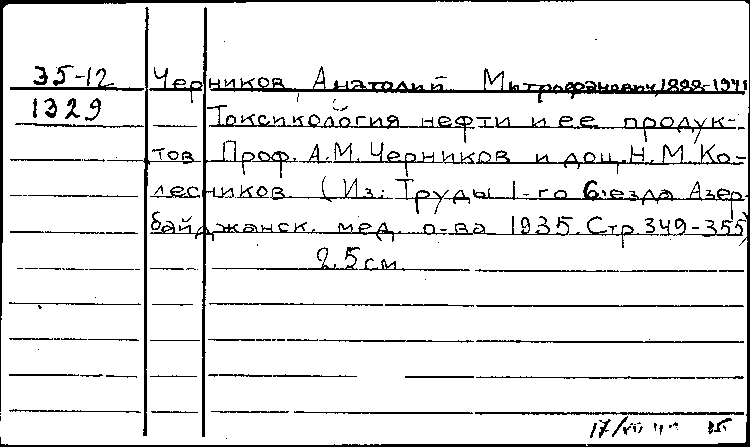 35-12 Черников, Анатолий Митрофанович, 1888-1941
1329 Токсикология нефти и ее продук-
тов Проф. А.М. Черников и доц. Н.М. Ко-
лесников. (Из: Труды 1-го С'езда Азер-
байджанск. мед. о-ва 1935. Стр. 349-355)
25 см.
17/VII